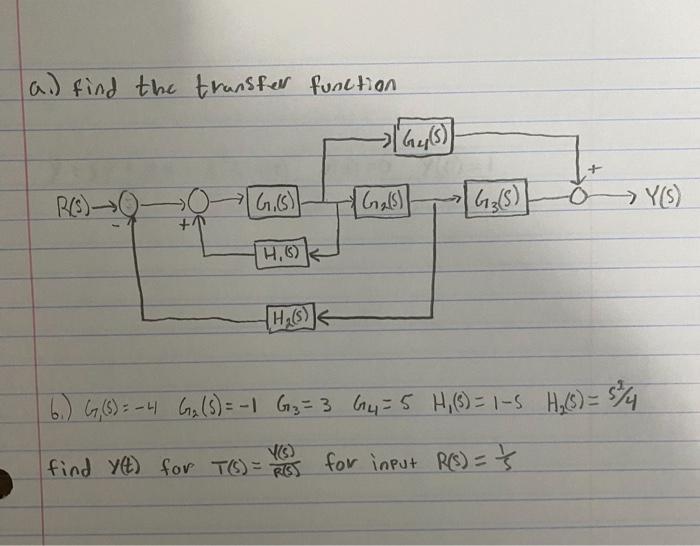 a.) find the transfer function
G4(s)
+
R(s) G1(s) G2(s) G3(s) Y(s)
- +
H1(s)
H2(s)
b.) G1(s) = -4 G2(s) = -1 G3 = 3 G4 = 5 H1(s) = 1-s H2(s) = s²/4
find y(t) for T(s) = Y(s)/R(s) for input R(s) = 1/s